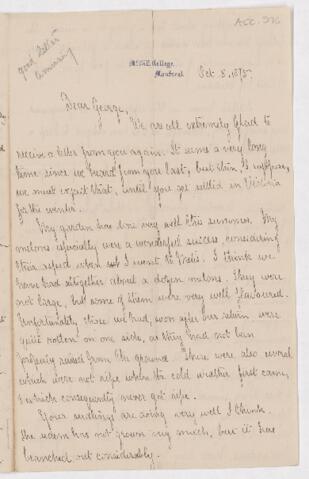 Acc. 976
good letter
amusing
McGill College,
Montreal
Oct. 8, 1875.
Dear George,
We are all extremely glad to
receive a letter from you again. It seems a very long
time since we heard from you last, but then, I suppose,
we must expect that, until you get settled in Victoria
for the winter.
My garden has done very well this summer. My
melons especially were a wonderful success, considering
their aspect when I went to Metis. I think we
have had altogether about a dozen melons. They were
not large, but some of them were very well flavoured.
Unfortunately those we had, soon after our return were
quite rotten on one side, as they had not been
properly raised from the ground. There were also several
which were not ripe when the cold weather first came,
& which consequently never got ripe.
Your seedlings are doing very well I think.
The adam has not grown very much, but it has
branched out considerably.